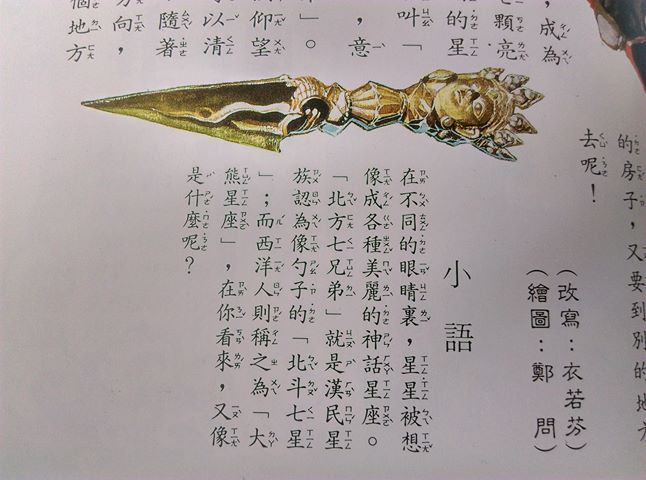 ，成為
七顆亮
的星
叫「
，意
」。
仰望
以清
隨著
方向，
個地方
的房子，又要到別的地方
去呢！
（改寫：衣若芬）
（繪圖：鄭　問）
小語
在不同的眼睛裏，星星被想
像成各種美麗的神話星座。
「北方七兄弟」就是漢民星
族認為像勺子的「北斗七星
」；而西洋人則稱之為「大
熊星座」，在你看來，又像
是什麼呢？